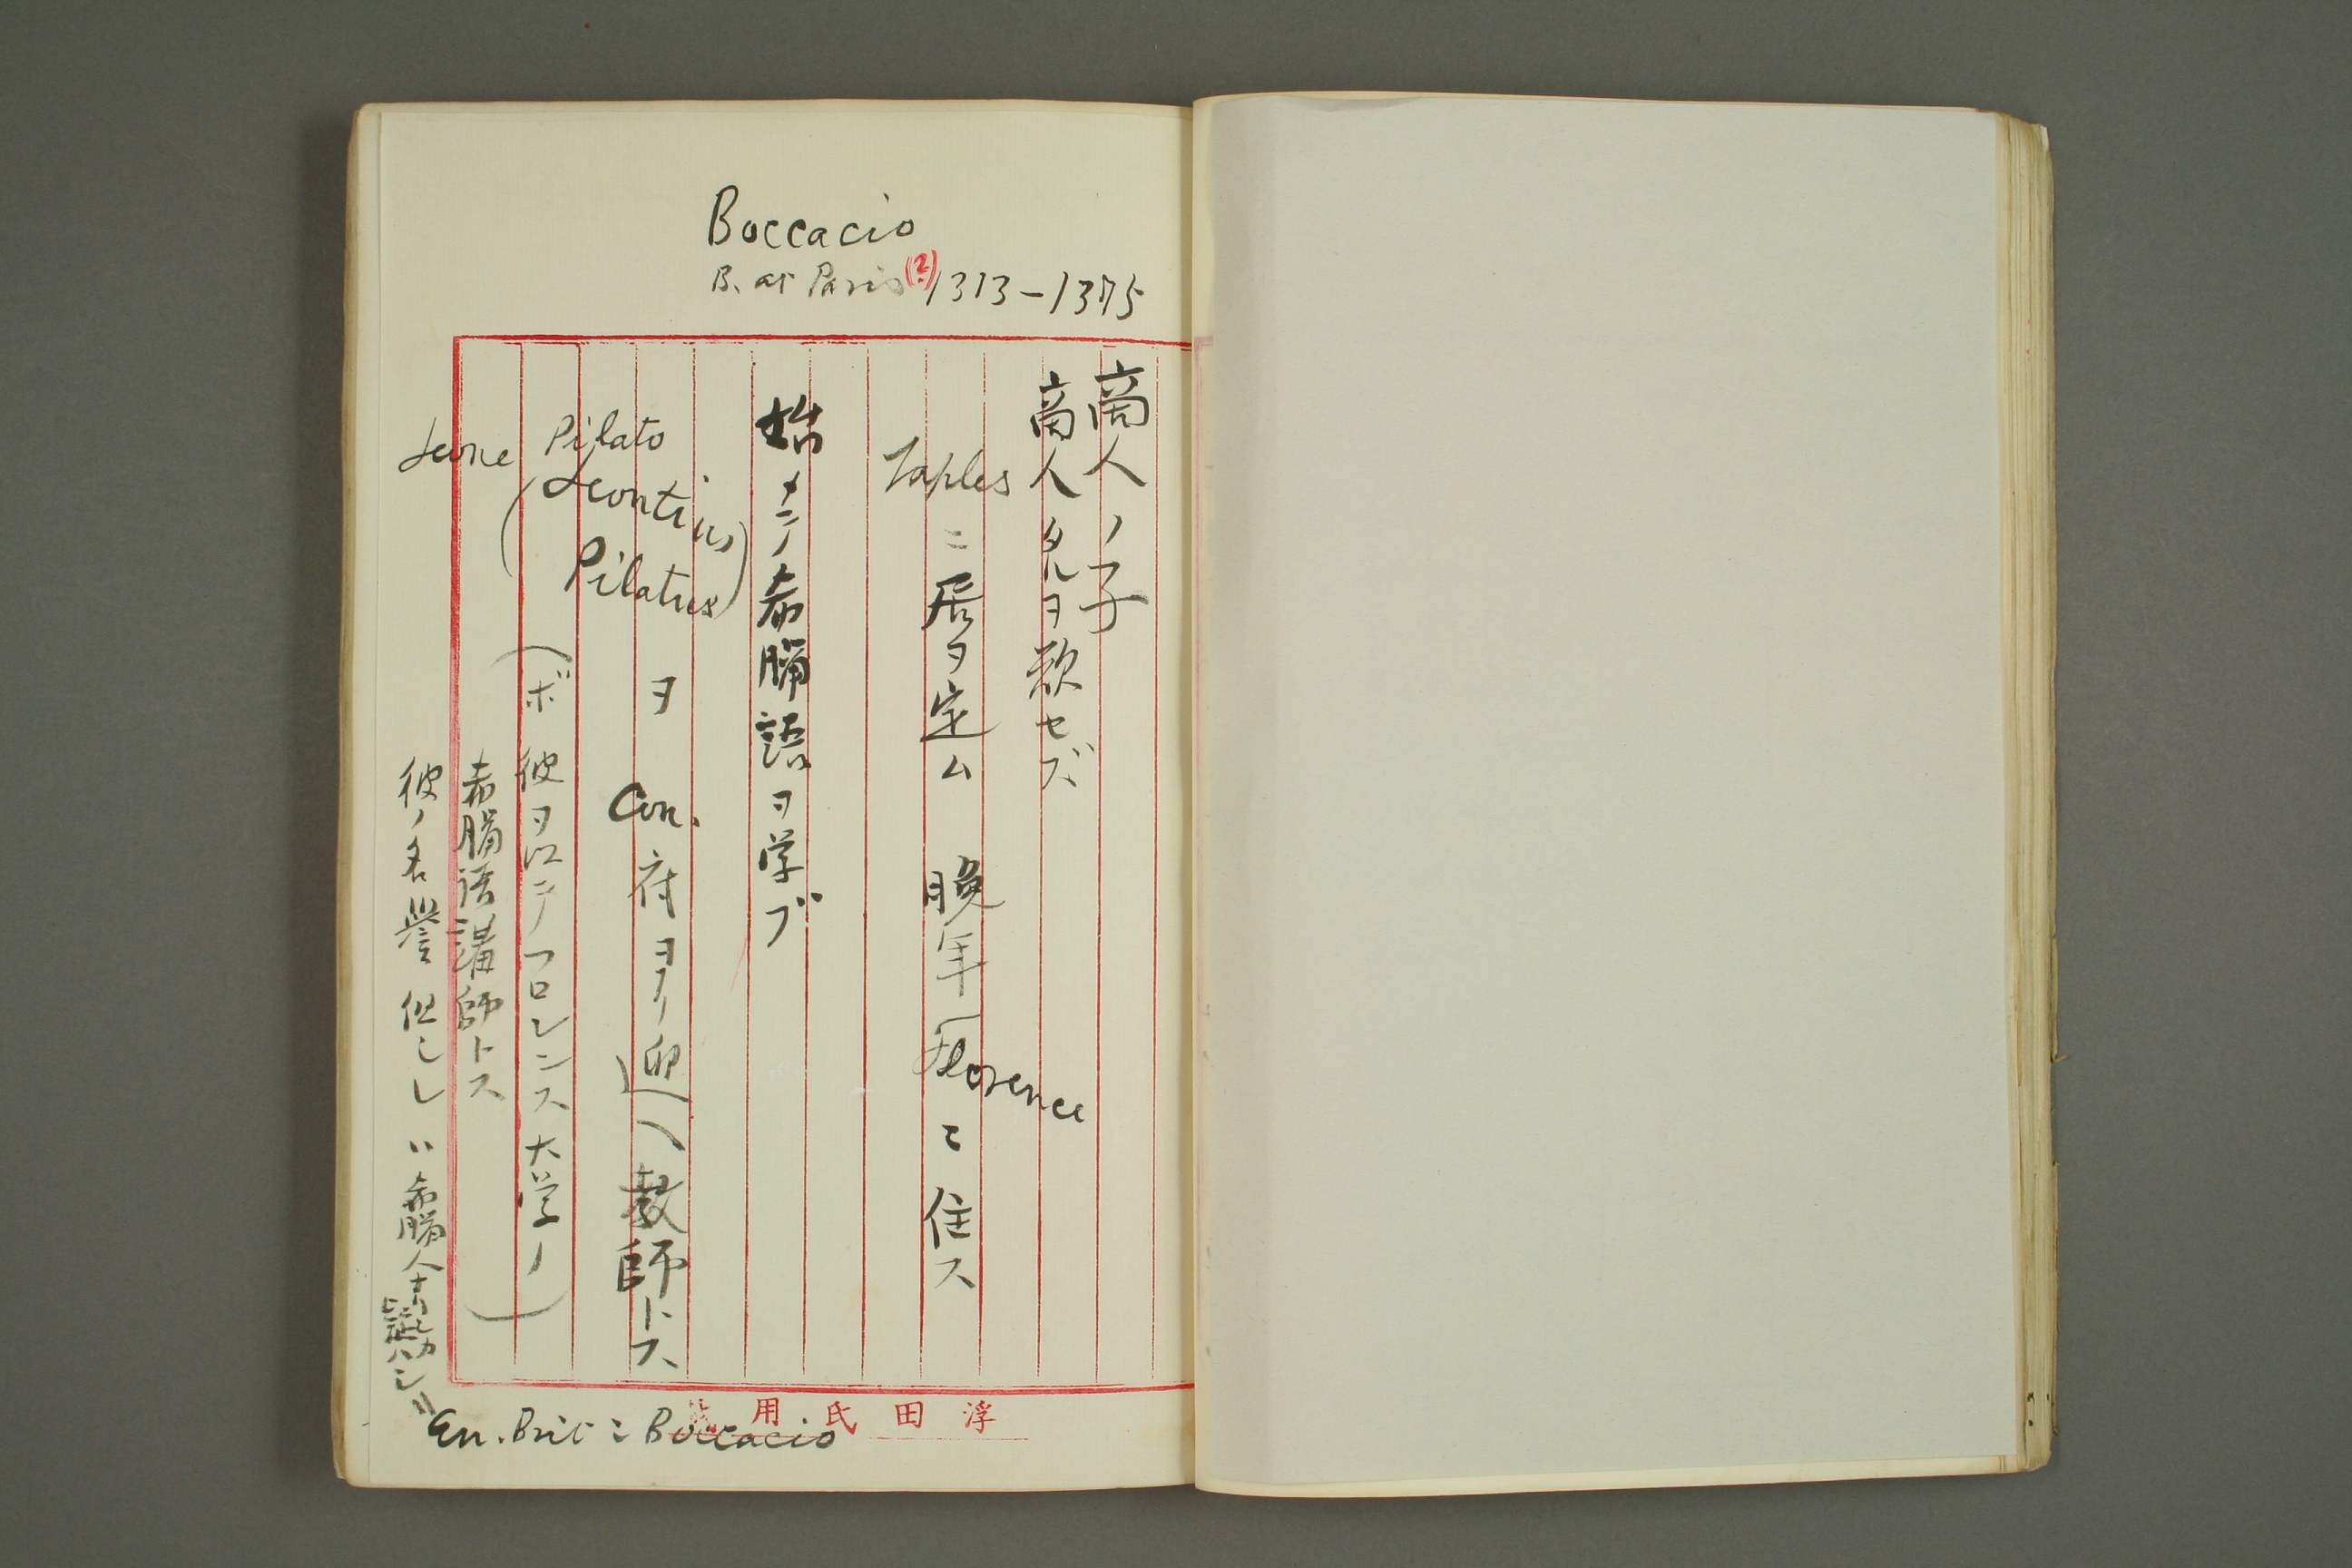 Boccacio
B. at Paris (?) 1313-1375
商人ノ子
商人タルヲ欲セズ
Naplesニ居ヲ定ム 晩年Florenceニ住ス
始メテ希臘語ヲ学ブ
Leone Pilato
(Leontius
Pilatus)
ヲ Con.府ヨリ迎ヘ教師トス
(ボ 彼ヲ以テフロレンス大学ノ
希臘語講師トス)
彼ノ名誉 但シ 希臘人
En. Britニ Boccacio
浮田氏用